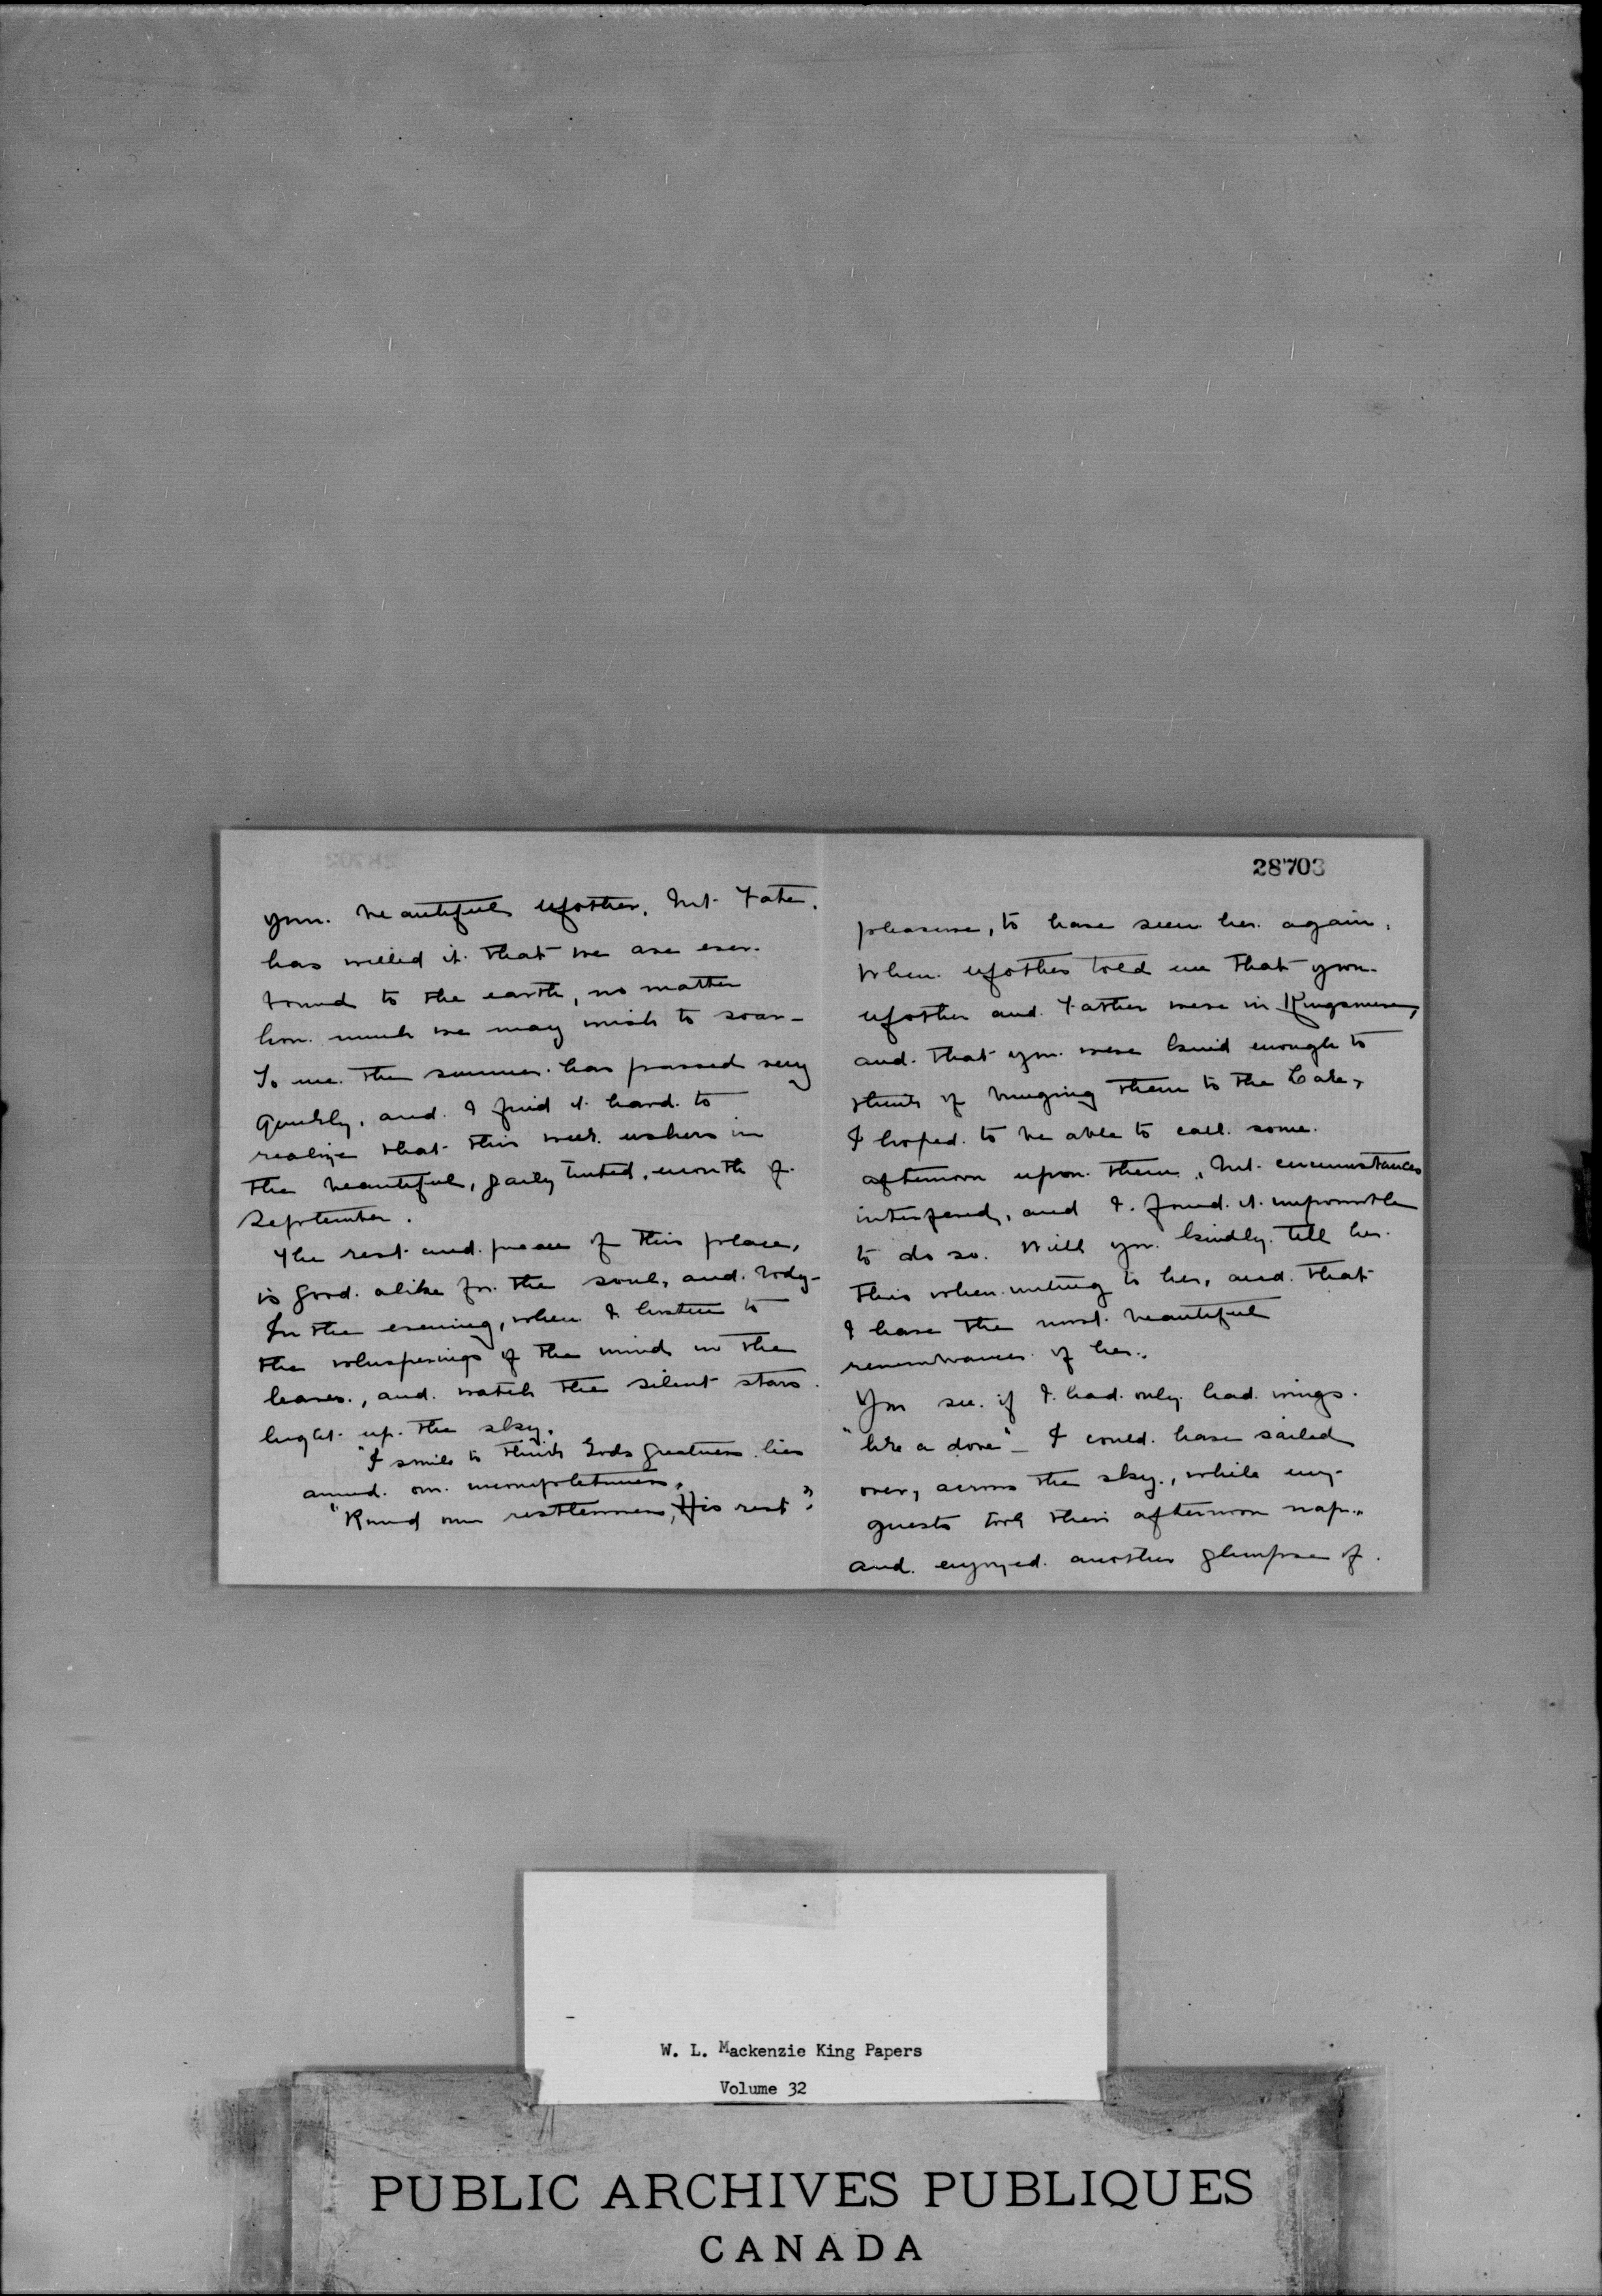 28703
your beautiful Mother, but Fate,
has willed it that we are ever
bound to the earth, no matter
how much we may wish to soar –
To me the summer has passed very
quickly, and I find it hard to
realize that this week ushers in
the beautiful, gaily tinted, month of
September.
The rest and peace of this place,
is good alike for the soul, and body –
In the evening, when I listen to
the whisperings of the wind in the
leaves, and watch the silent stars
light up the sky,
"I smile to think God's greatness lies
around our incompleteness,
"Round our restlessness, His rest"
pleasure, to have seen her again.
When Mother told me that your
Mother and Father were in Kingsmere,
and that you were kind enough to
think of bringing them to the Lake,
I hoped to be able to call some
afternoon upon them, but circumstances
interfered, and I found it impossible
to do so. Will you kindly tell her
this when writing to her, and that
I have the most beautiful
remembrances of her.
You see if I had only had wings
"like a dove" – I could have sailed
over, across the sky, while my
guests took their afternoon nap,
and enjoyed another glimpse of
W. L. Mackenzie King Papers
Volume 32
PUBLIC ARCHIVES PUBLIQUES
CANADA